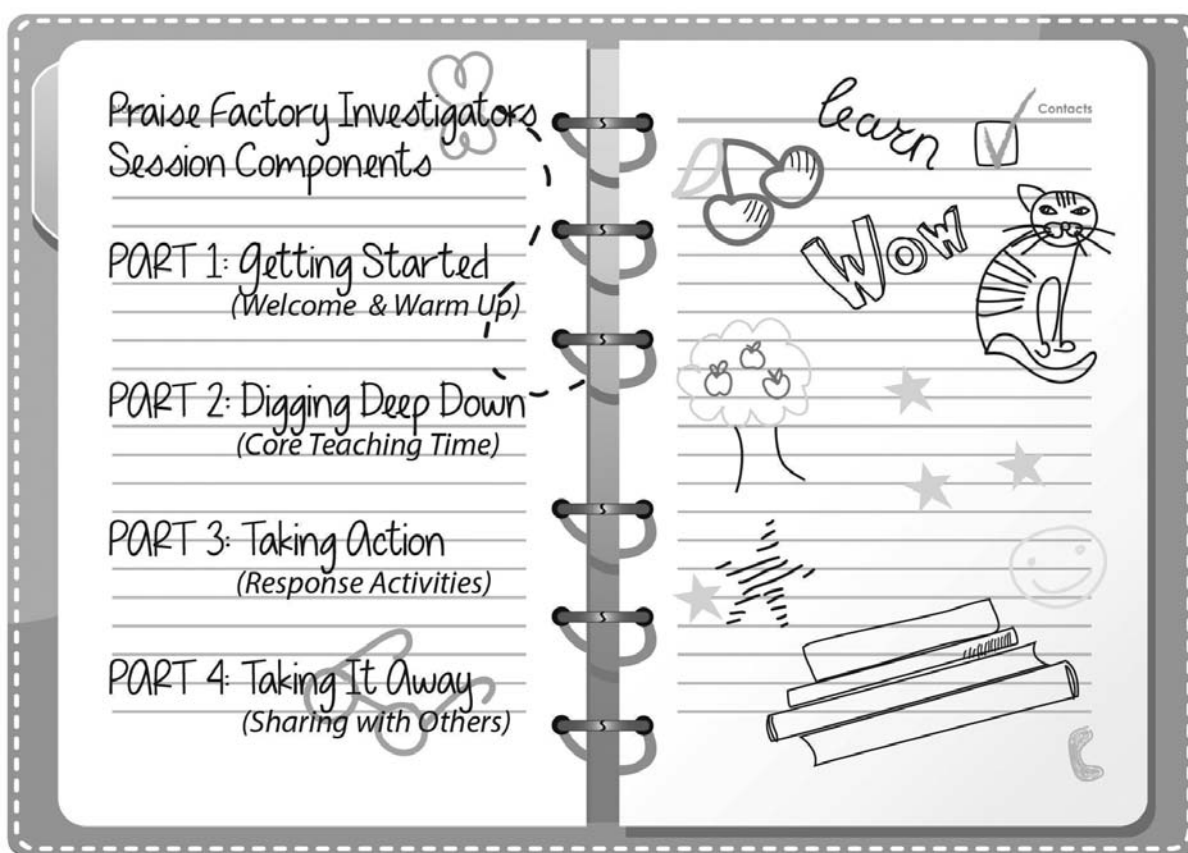 Praise Factory Investigators
Session Components
PART 1: Getting Started
(Welcome & Warm Up)
PART 2: Digging Deep Down
(Core Teaching Time)
PART 3: Taking Action
(Response Activities)
PART 4: Taking It Away
(Sharing with Others)
learn
Contacts
Wow